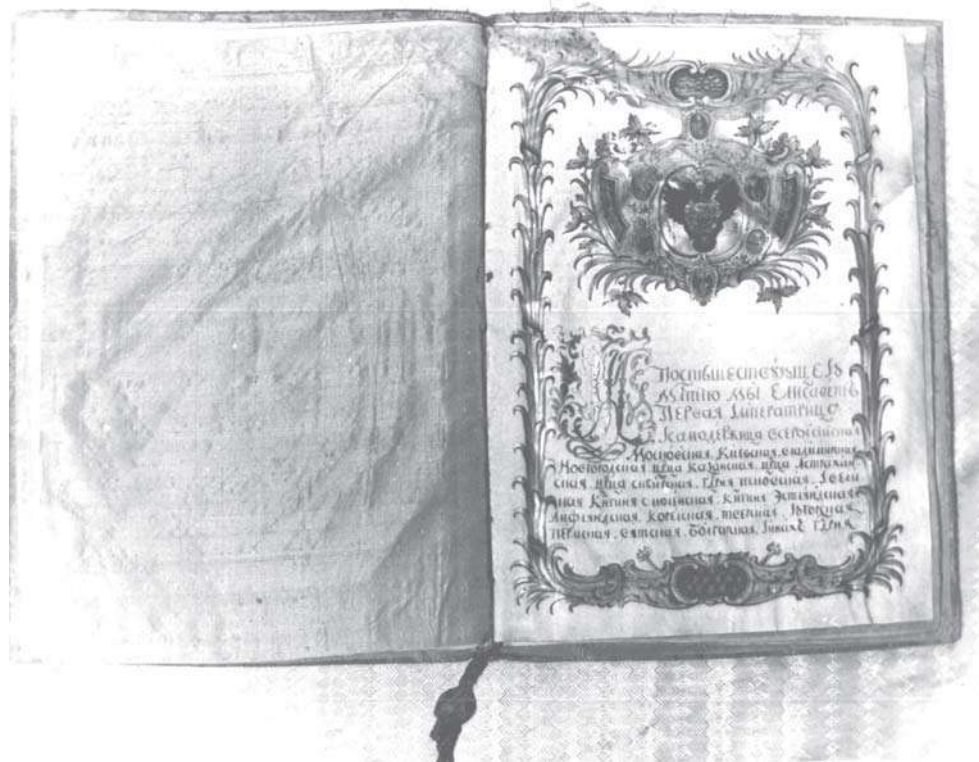 поспѣшествующею
млтїю мы Елисаветъ
Первая Императрица
Исамодержица всероссїйская
Московская, Кїевская, владимирская
Новгородская црца казанская, црца Астрахан
ская, црца сибирская, гдрня псковская, Iвели
кая Княгиня смоленская, княгиня Эстляндская
Лифляндская, корелская, тверская, Югорская
пермская, вятская, болгарская, Iиныхъ гдрня